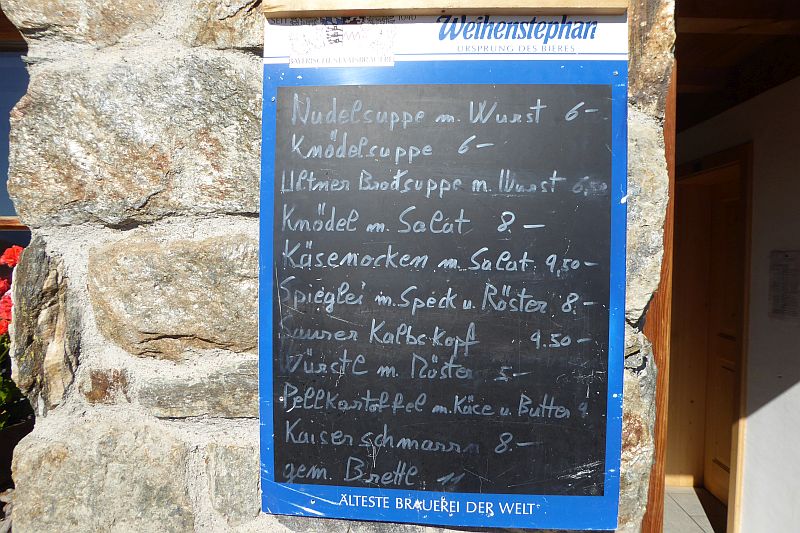 Weihenstephan
URSPRUNG DES BIERES
BAYERISCHE STAATSBRAUEREI
Nudelsuppe m. Wurst 6-
Knödelsuppe 6-
Ultner Brotsuppe m. Wurst 6,50
Knödel m. Salat 8.-
Käsenocken m. Salat 9,50-
Spieglei m. Speck u. Röster 8.-
Saurer Kalbskopf 9.50-
Würstl m. Röster 5-
Pellkartoffel m. Käse u. Butter 9
Kaiserschmarrn 8.-
gem. Brettl 11
ÄLTESTE BRAUEREI DER WELT